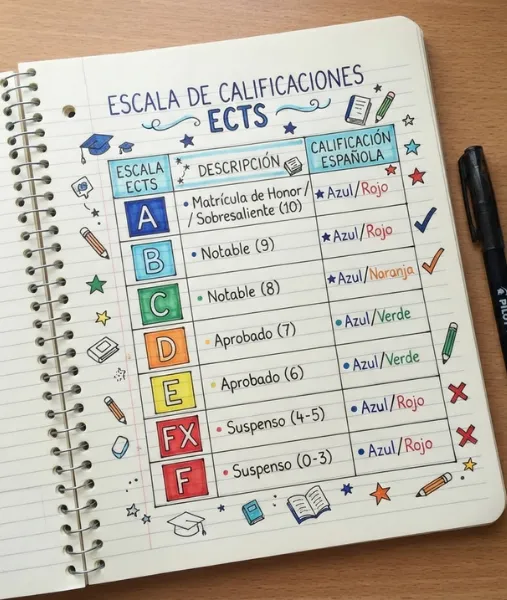 ESCALA DE CALIFICACIONES
ECTS
ESCALA ECTS
DESCRIPCIÓN
CALIFICACIÓN ESPAÑOLA
A
• Matrícula de Honor/
/ Sobresaliente (10)
★ Azul/Rojo
B
• Notable (9)
★ Azul/Rojo
C
• Notable (8)
★ Azul/Naranja
D
• Aprobado (7)
• Azul/Verde
E
• Aprobado (6)
• Azul/Verde
FX
• Suspenso (4-5)
• Azul/Rojo
F
• Suspenso (0-3)
• Azul/Rojo
PILOT